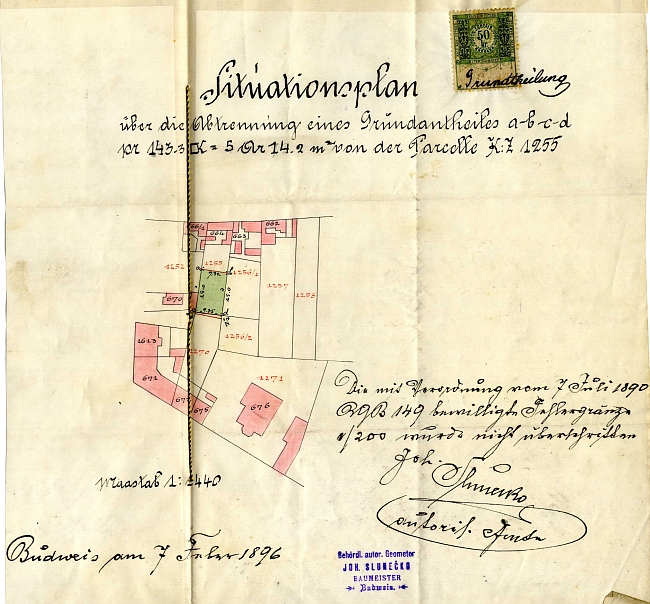 50
Grundtheilung
Situationsplan
über die Abtrennung eines Grundantheiles a-b-c-d
pr 143.3 □K = 5 Ar 14.2 m² von der Parcelle K:Z 1255
664
663
662
1252
1255
1256/1
1257
1258
670
1256/2
1613
1270
671
1271
675
676
Die mit Verordnung vom 7 Juli 1890
RGB 149 bewilligte Fehlergränze
1/200 wurde nicht überschritten
Joh. Slunečko
autoris.
Maastab 1:1440
Budweis am 7 Feber 1896
Behördl. autor. Geometer
JOH. SLUNEČKO
BAUMEISTER
Budweis.